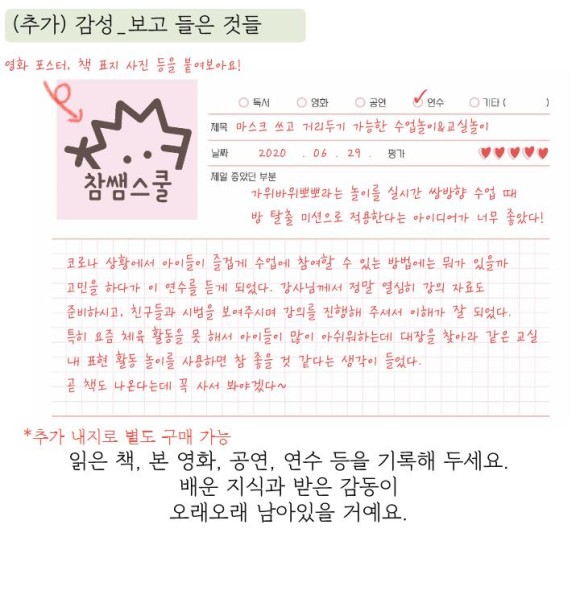 (추가) 감성_보고 들은 것들
영화 포스터, 책 표지 사진 등을 붙여보아요!
참쌤스쿨
○ 독서 ○ 영화 ○ 공연 ○ 연수 ○ 기타 ( )
제목 마스크 쓰고 거리두기 가능한 수업놀이&교실놀이
날짜 2020 . 06 . 29 . 평가 ♥♥♥♥♥
제일 좋았던 부분
가위바위뽀뽀라는 놀이를 실시간 쌍방향 수업 때
방 탈출 미션으로 적용한다는 아이디어가 너무 좋았다!
코로나 상황에서 아이들이 즐겁게 수업에 참여할 수 있는 방법에는 뭐가 있을까
고민을 하다가 이 연수를 듣게 되었다. 강사님께서 정말 열심히 강의 자료도
준비하시고, 친구들과 시범을 보여주시며 강의를 진행해 주셔서 이해가 잘 되었다.
특히 요즘 체육 활동을 못 해서 아이들이 많이 아쉬워하는데 대장을 찾아라 같은 교실
내 표현 활동 놀이를 사용하면 참 좋을 것 같다는 생각이 들었다.
곧 책도 나온다는데 꼭 사서 봐야겠다~
*추가 내지로 별도 구매 가능
읽은 책, 본 영화, 공연, 연수 등을 기록해 두세요.
배운 지식과 받은 감동이
오래오래 남아있을 거예요.